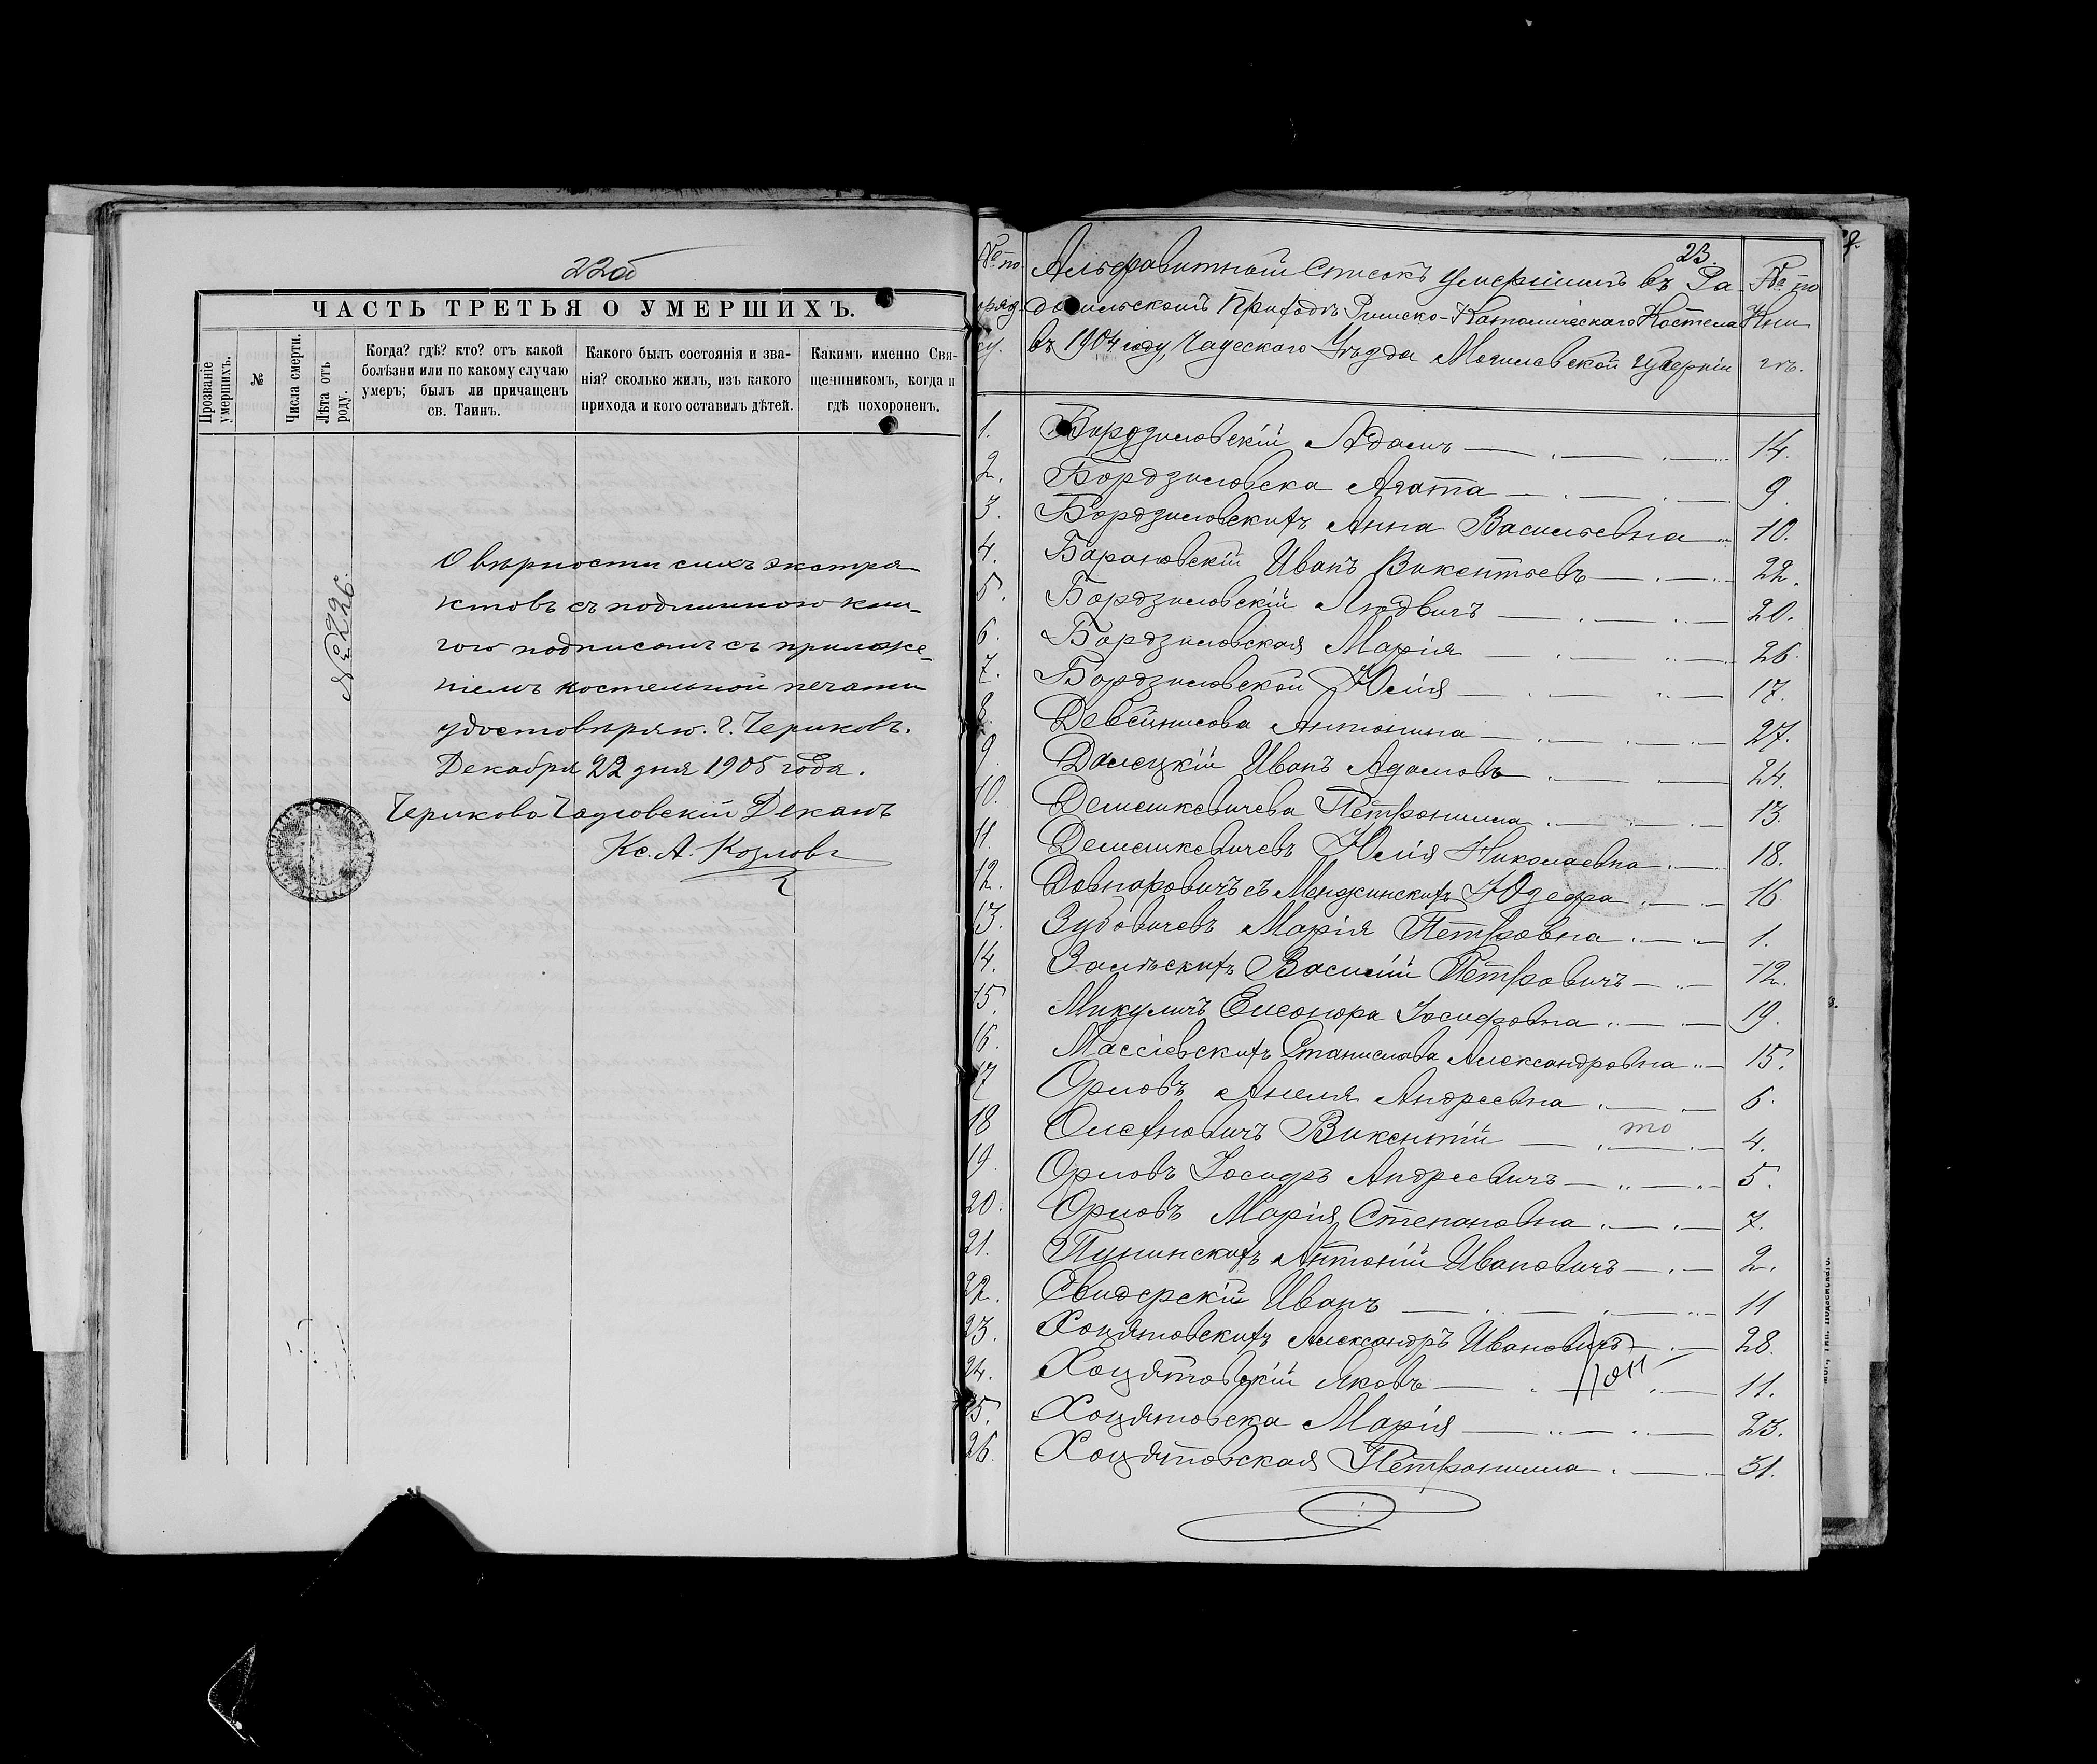 22об
ЧАСТЬ ТРЕТЬЯ О УМЕРШИХЪ.
Прозваніе умершихъ.
№
Числа смерти.
Лѣта отъ роду.
Когда? гдѣ? кто? отъ какой
болѣзни или по какому случаю
умеръ; былъ ли причащенъ
св. Таинъ.
Какого былъ состоянія и зва-
нія? сколько жилъ, изъ какого
прихода и кого оставилъ дѣтей.
Какимъ именно Свя-
щенникомъ, когда и
гдѣ похороненъ.
№ 226.
О вѣрности сихъ экстра-
ктовъ съ подлинною кни-
гою подписомъ съ приложе-
ніемъ костельной печати
удостовѣряю. г. Чериковъ.
Декабря 22 дня 1905 года.
Чериково Чаусовскій Деканъ
Кс. А. Козловъ
23.
№ по
поряд
ку.
Альфавитный Списокъ умершимъ въ Ра
домльскомъ Приходѣ Римско-Католическаго Костела
въ 1904 году, Чаусского Уѣзда Могилевской губерніи
№ по
Кни
гѣ.
1. Бордзиловскій Адамъ 14.
2. Бордзиловска Агата 9.
3. Бордзиловскихъ Анна Васильевна 10.
4. Барановскій Иванъ Викентьевъ 22.
5. Бордзиловскій Людвигъ 20.
6. Бордзиловская Марія 26.
7. Бордзиловской Юлія 17.
8. Антонина 27.
9. Далецкій Иванъ Адамовъ 24.
10. Демешкевичева Петронилла 13.
11. Демешкевичевъ Юлія Николаевна 18.
12. Довнаровичъ съ Менжинскихъ Юзефа 16
13. Зубовичевъ Марія Петровна 1.
14. Залѣскихъ Василій Петровичъ 12.
15. Микуличъ Елеонора Іосифовна 19.
16. Массіевскихъ Станислава Александровна 15.
17 Орловъ Анеля Андреевна 6.
18 Олехновичъ Викентій то 4.
19. Орловъ Іосифъ Андреевичъ 5.
20. Орловъ Марія Степановна 7.
21. Пунинскихъ Антоній Ивановичъ 2.
22. Свидерскій Иванъ 11
23. Хоцятовскихъ Александръ Ивановичъ 28.
24. Хоцятовскій Яковъ 11.
25. Хоцятовска Марія 23.
26. Хоцятовская Петронилла 31.